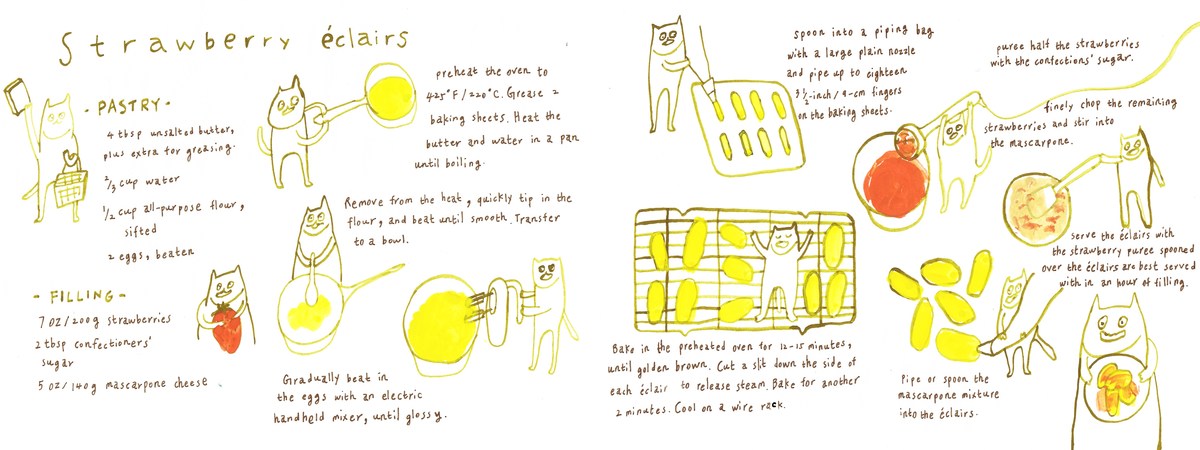 Strawberry éclairs
- PASTRY -
4 tbsp unsalted butter,
plus extra for greasing.
2/3 cup water
1/2 cup all-purpose flour,
sifted
2 eggs, beaten
- FILLING -
7 oz/200g strawberries
2 tbsp confectioners'
sugar
5 oz/140g mascarpone cheese
preheat the oven to
425°F/220°C. Grease 2
baking sheets. Heat the
butter and water in a pan
until boiling.
Remove from the heat, quickly tip in the
flour, and beat until smooth. Transfer
to a bowl.
Gradually beat in
the eggs with an electric
handheld mixer, until glossy.
spoon into a piping bag
with a large plain nozzle
and pipe up to eighteen
3 1/2-inch/9-cm fingers
on the baking sheets.
Bake in the preheated oven for 12-15 minutes,
until golden brown. Cut a slit down the side of
each éclair to release steam. Bake for another
2 minutes. Cool on a wire rack.
puree half the strawberries
with the confections' sugar.
finely chop the remaining
strawberries and stir into
the mascarpone.
Pipe or spoon the
mascarpone mixture
into the éclairs.
serve the éclairs with
the strawberry puree spooned
over the éclairs are best served
with in an hour of filling.